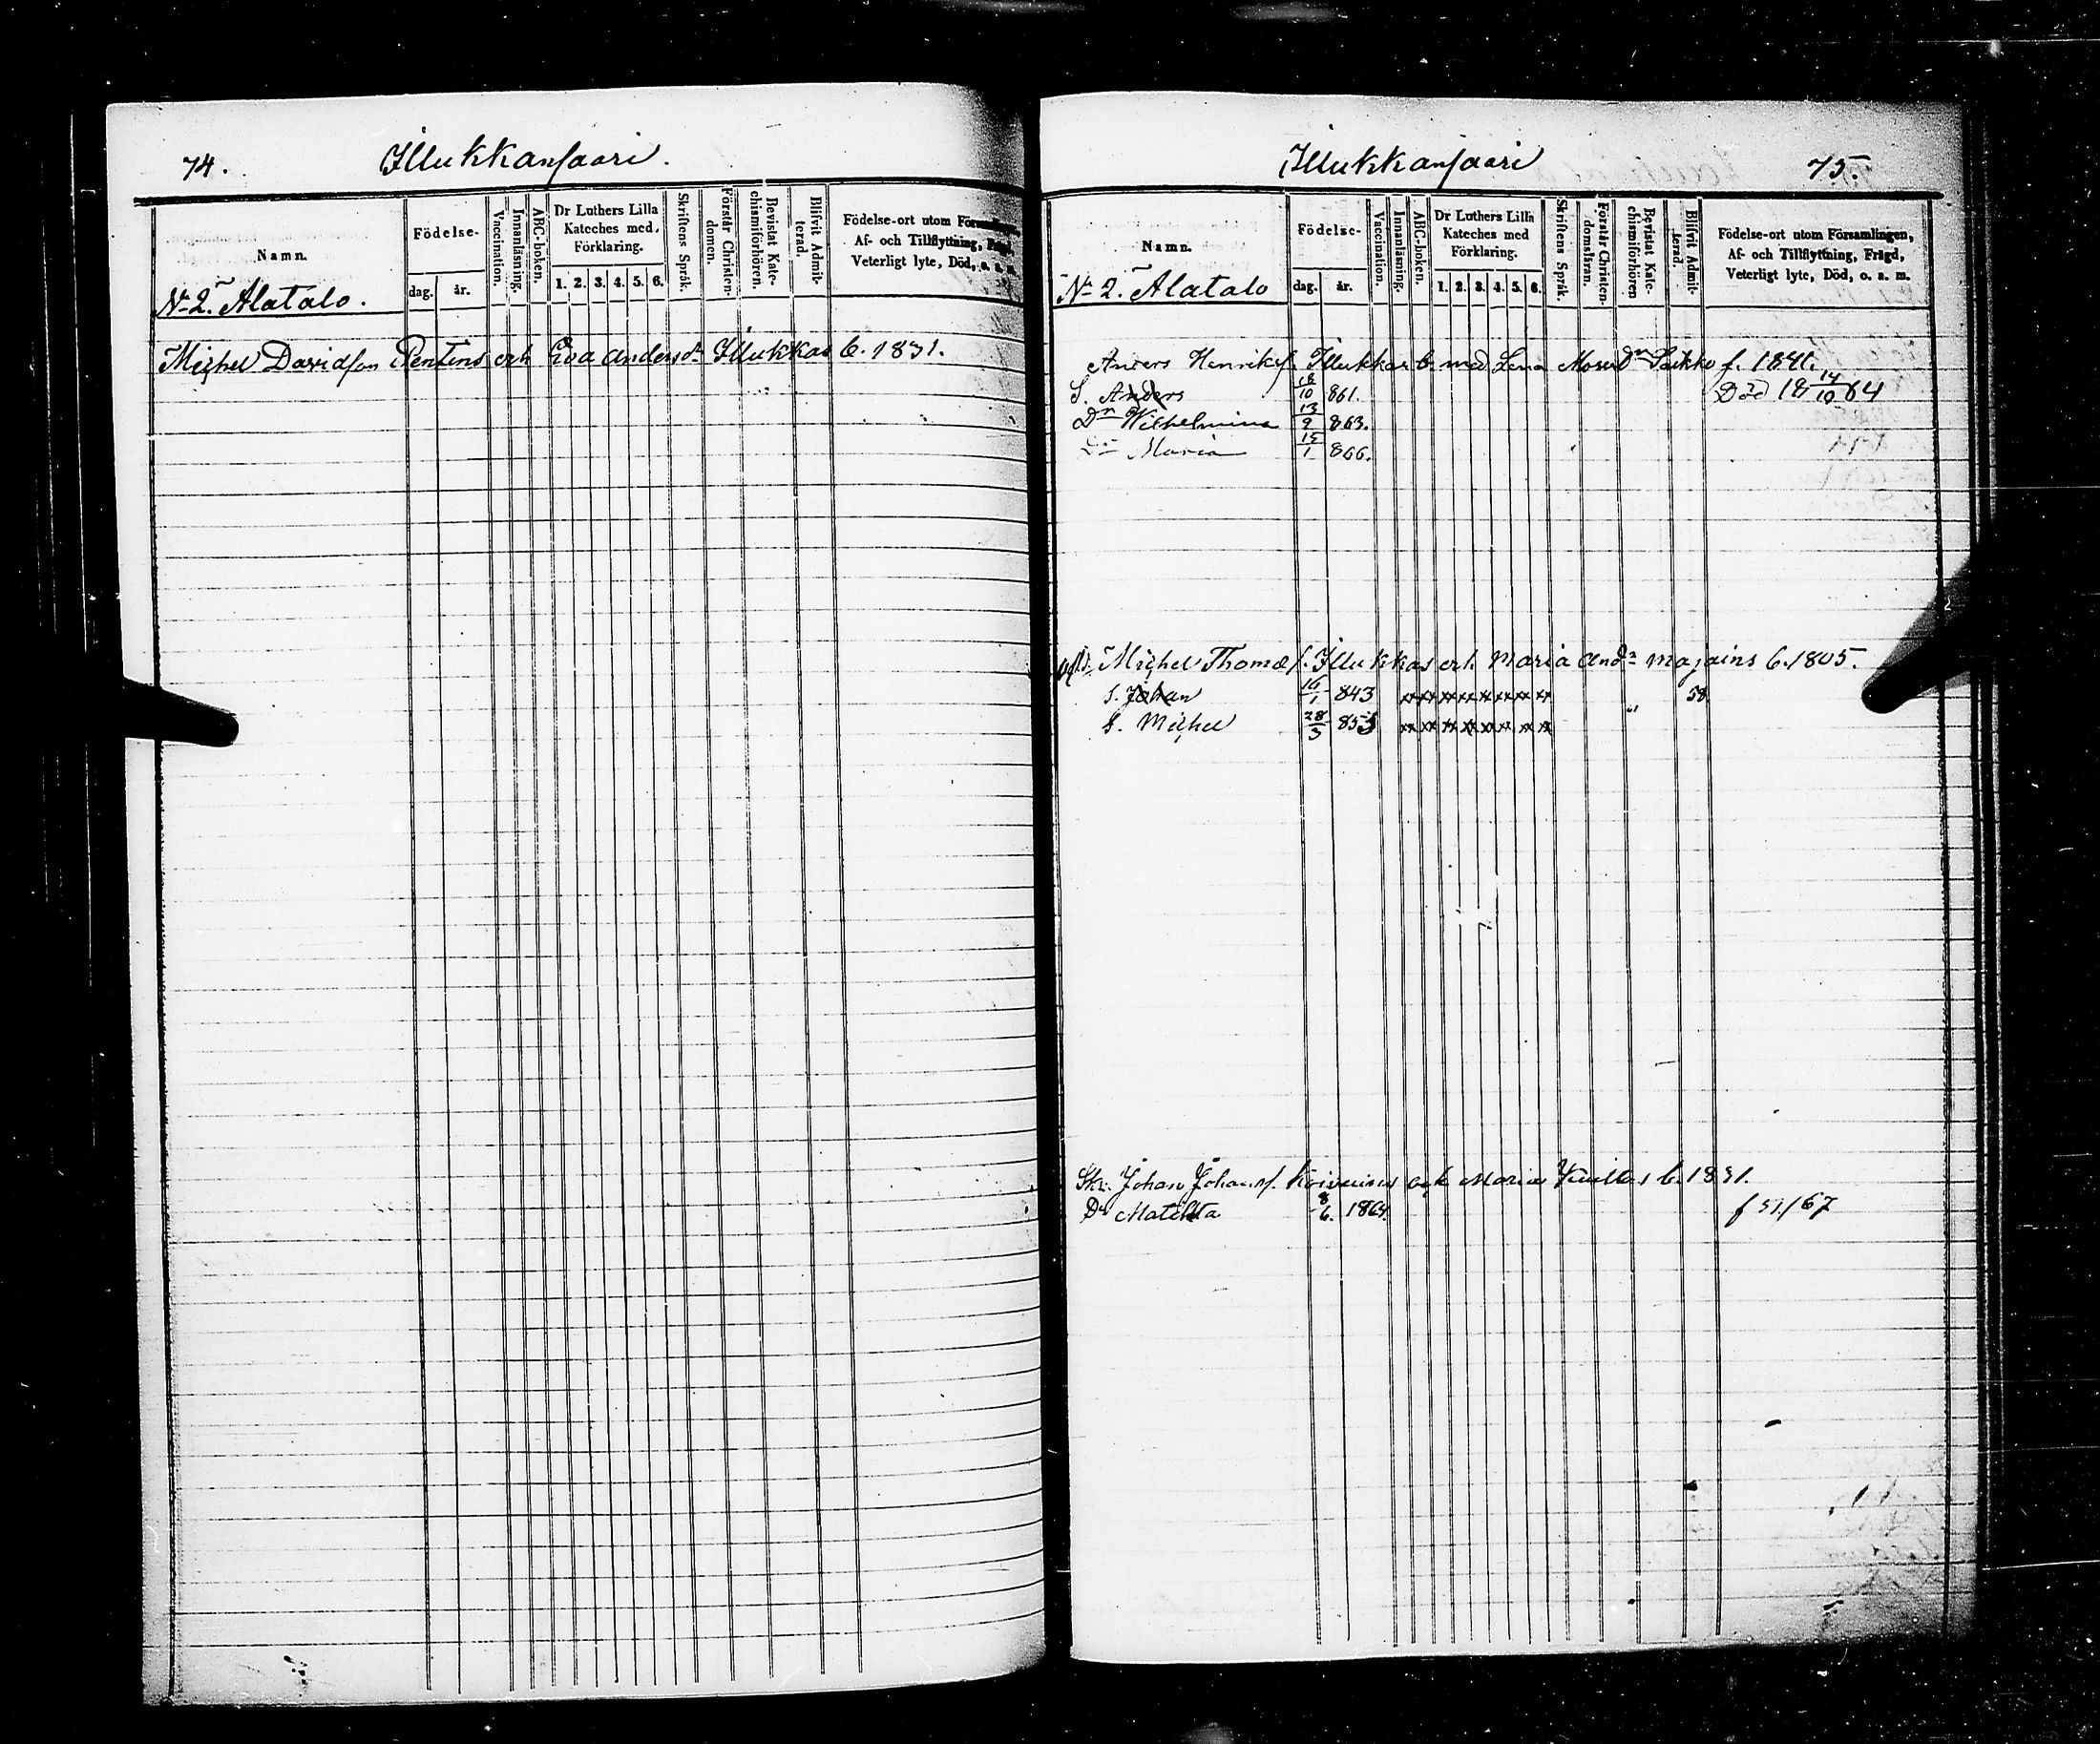 74. Illukkansaari.
Namn.
Födelse-
dag. år.
Vaccination.
Innanläsning.
ABC-boken.
Dr Luthers Lilla Kateches med. Förklaring.
1. 2. 3. 4. 5. 6.
Skriftens Språk.
Förstår Christen-domen.
Bevistat Kate-chismiförhören.
Blifvit Admit-terad.
Födelse-ort utom Församlingen,
Af- och Tillflyttning, Frägd,
Veterligt lyte, Död, o. s. m.
N 2. Alatalo.
Michel Davidson Pentins och Eva Andersdr Illukkas b. 1831.
Illukkansaari 75.
Namn.
Födelse-
dag. år.
Vaccination.
Innanläsning.
ABC-boken.
Dr Luthers Lilla Kateches med Förklaring.
1. 2. 3. 4. 5. 6.
Skriftens Språk.
Förstår Christen-domsläran.
Bevistat Kate-chismiförhören
Blifvit Admit-terad.
Födelse-ort utom Församlingen,
Af- och Tillflyttning, Frägd,
Veterligt lyte, Död, o. s. m.
N 2. Alatalo
Anders Henriks. Illukkas b. med Lena Mosesdr Saikko f. 1841.
S. Anders 18/10 861. Död 18 14/10 64
Dr Wilhelmina 13/9 863.
Dr Maria 15/1 866.
Michel Thomæs. Illukkas och Maria Andr Majains b. 1805.
S. Johan 16/1 843 " 58
S. Michel 28/3 853
Johan Johans. Koivuinus och Maria b. 1831.
Dr Matilda 8/6. 1864. f 51/67